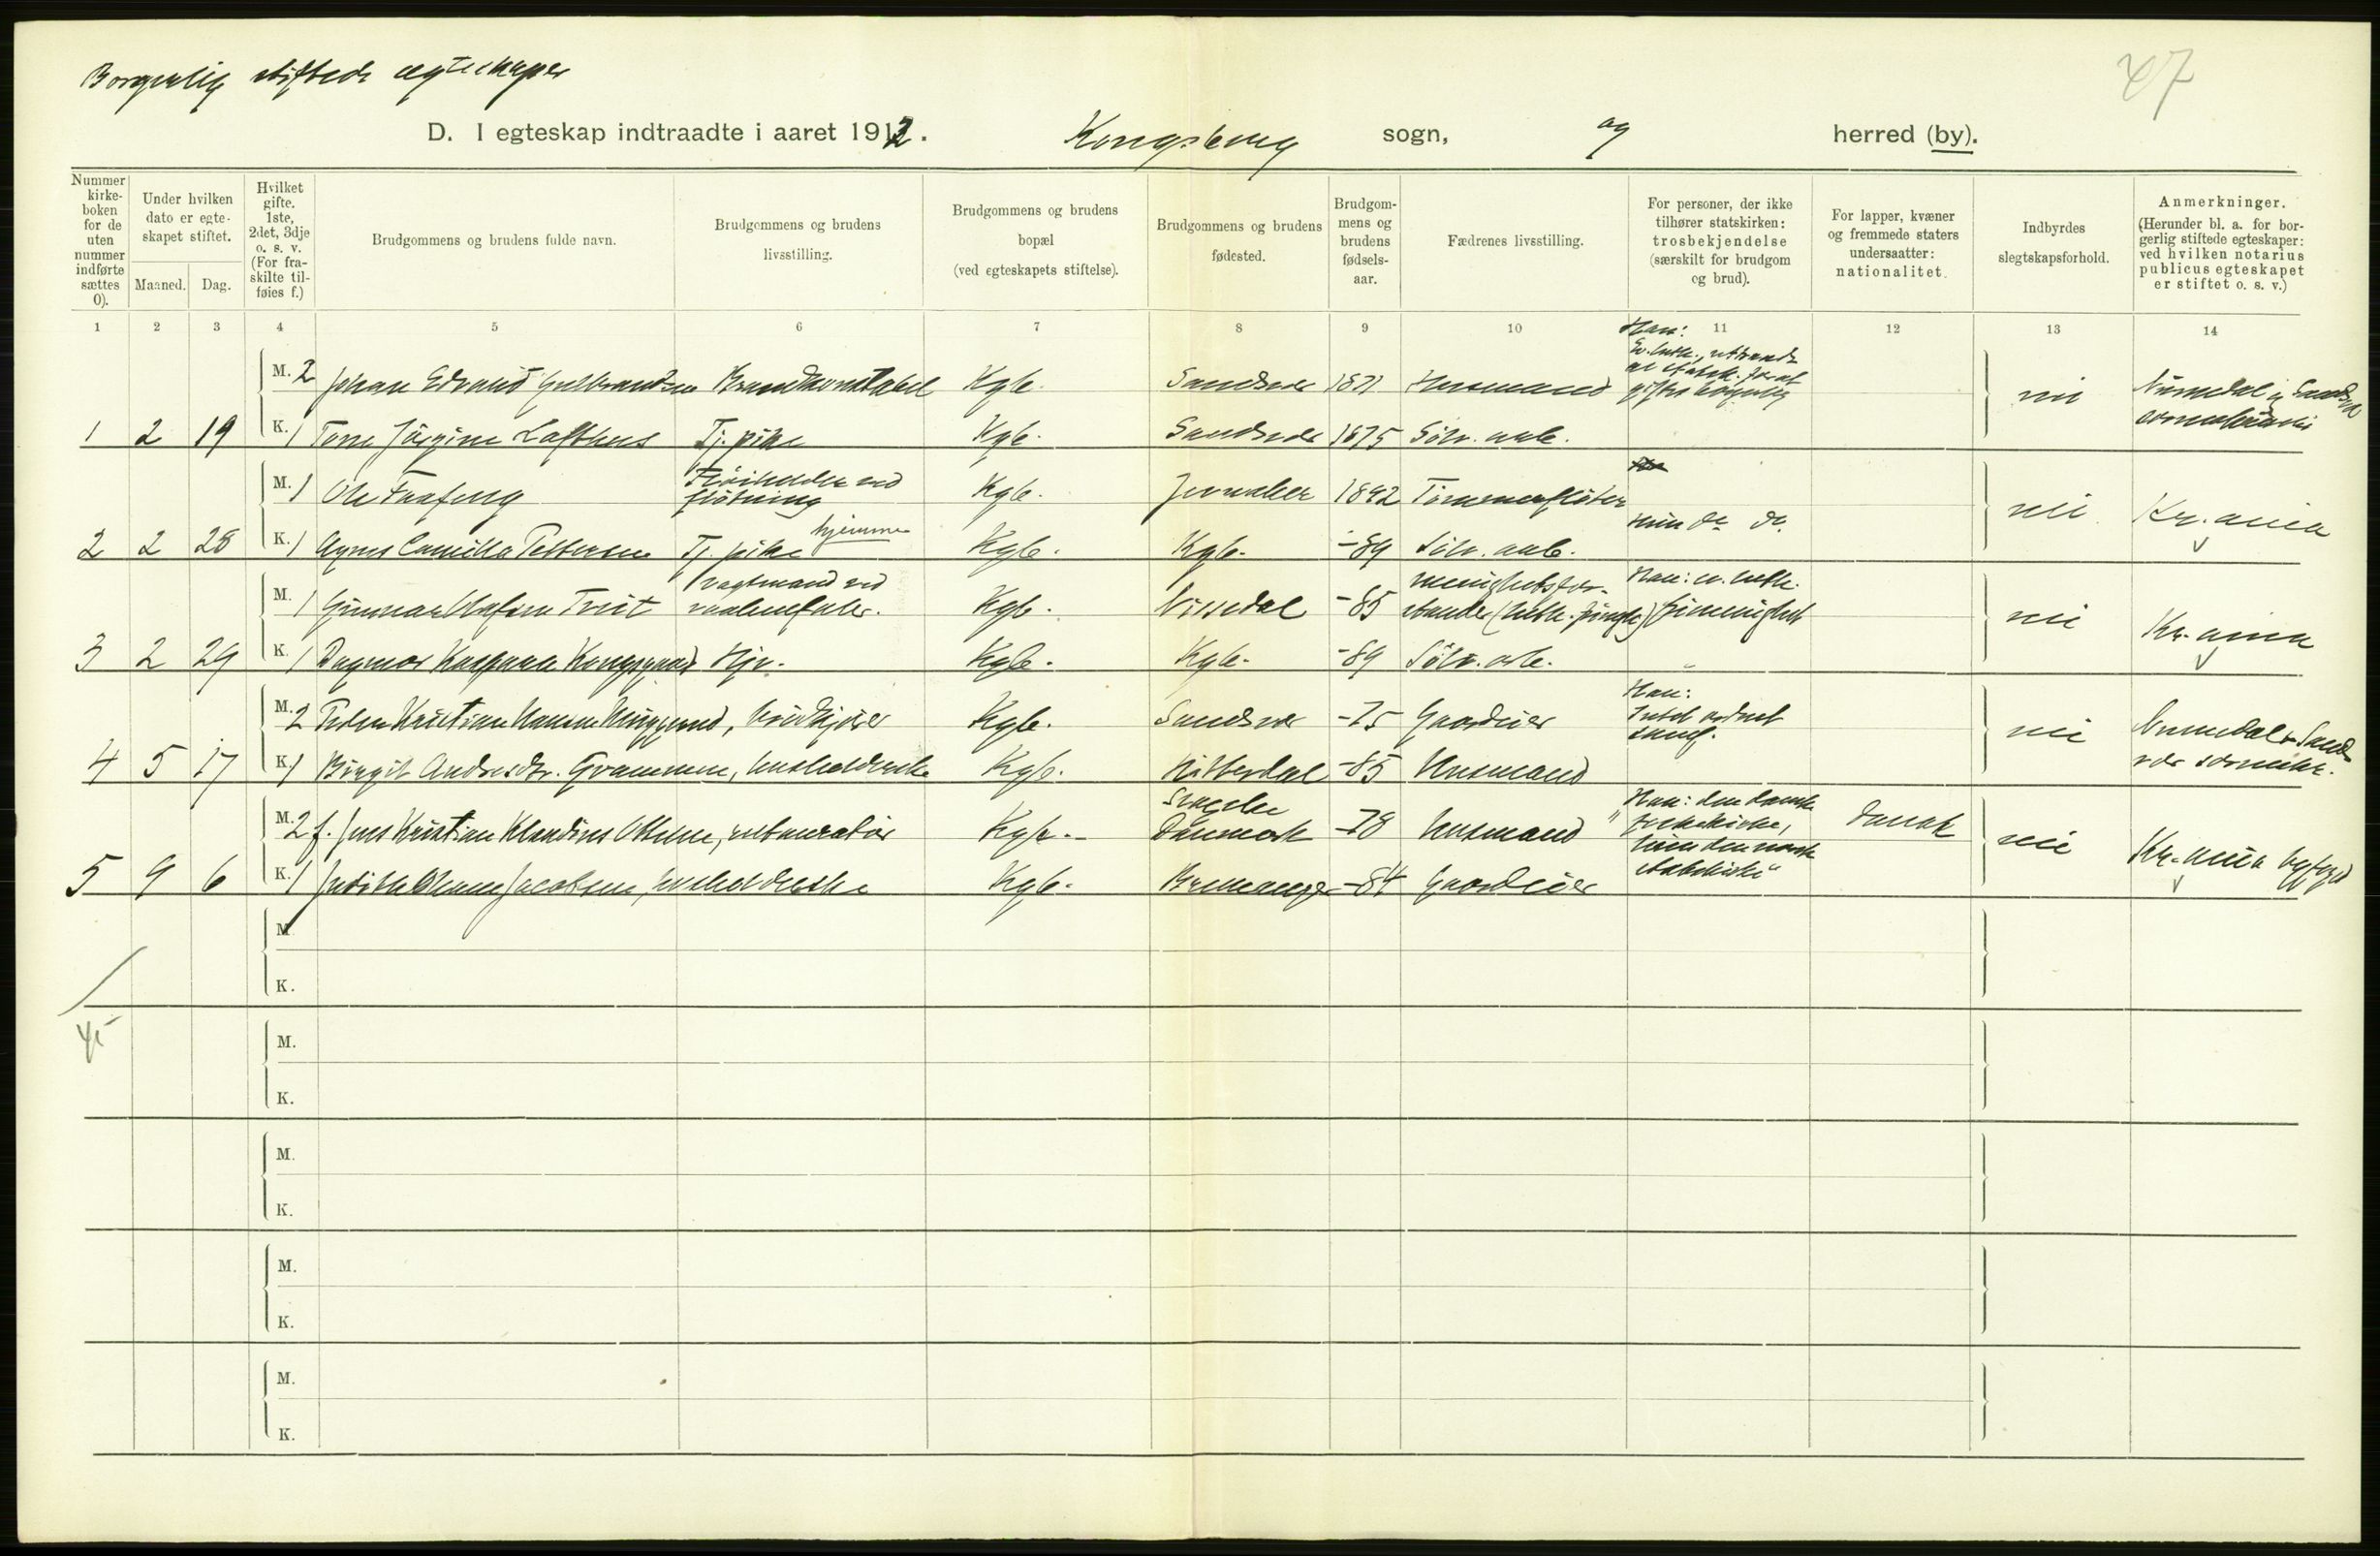 Borgerlig stiftede egteskaper
47
D. I egteskap indtraadte i aaret 1912. Kongsberg sogn, og herred (by).
Nummer kirke-boken for de uten nummer indførte sættes 0).
Under hvilken dato er egte-skapet stiftet.
Maaned. Dag.
Hvilket gifte. 1ste, 2det, 3dje o. s. v. (For fra-skilte til-føies f.)
Brudgommens og brudens fulde navn.
Brudgommens og brudens livsstilling.
Brudgommens og brudens bopæl (ved egteskapets stiftelse).
Brudgommens og brudens fødested.
Brudgom-mens og brudens fødsels-aar.
Fædrenes livsstilling.
For personer, der ikke tilhører statskirken: trosbekjendelse (særskilt for brudgom og brud).
For lapper, kvæner og fremmede staters undersaatter: nationalitet.
Indbyrdes slegtskapsforhold.
Anmerkninger. (Herunder bl. a. for bor-gerlig stiftede egteskaper: ved hvilken notarius publicus egteskapet er stiftet o. s. v.)
1 2 3 4 5 6 7 8 9 10 11 12 13 14
M. 2 Johan Edvard Gulbrandsen Brandkonstabel Kgb. Sandsvær 1871 Husmand Han: Ev. luth., uttraadt av statsk. for at giftes borgerlig nei Numedal og Sandsvær
1 2 19 K. 1 Tone Jørgine Lofthus Tj. pike Kgb. Sandsvær 1875 Sölv. arb.
M. 1 Ole ved flötning Kgb. Jevnaker 1892 Tömmerflöter nei Kr.ania
2 2 28 K. 1 Agnes Camilla Pettersen Tj. pike hjemme Kgb. Kgb. -89 Sölv. arb. Hun do do
M. 1 Gunnar Olafsen Tveit vagtmand ved vaabenfabr. Kgb. Nissedal -85 menighetsfor-stander (luth. frimgh) Han: ev. luth. frimenighet nei Kr.ania
3 2 29 K. 1 Dagmar Kaspara Kongsgaard Hjv. Kgb. Kgb. -89 Sölv. arb. "
M. 2 Peder Kristian Hansen Kgb. Sandsvær -75 Gaardeier Han: Intet ordnet samf. nei Numedal & Sand-
4 5 17 K. 1 Birgit Andresdtr. Grammen, husholderske Kgb. Hitterdal -85 Husmand vær sorenskr.
M. 2 f. Jens Kristian Klaudius Ottesen, restauratör Kgb. Slagelse Danmark -78 Husmand Han: den danske folkekirke, dansk nei Kr.ania byfogd
5 9 6 K. 1 Judith Jacobsen, husholderske Kgb. Bremanger -84 Gaardeier hun den norske statskirke
M.
K.
M.
K.
M.
K.
M.
K.
M.
K.